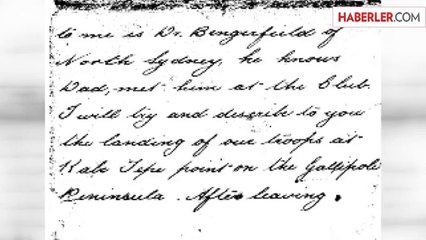 HABERLER.COM
to me is Dr. Bengerfield of
North Sydney, he knows
Dad, met him at the Club.
I will try and describe to you
the landing of our troops at
Kabe Tepe point on the Gallipoli
Peninsula. After leaving.